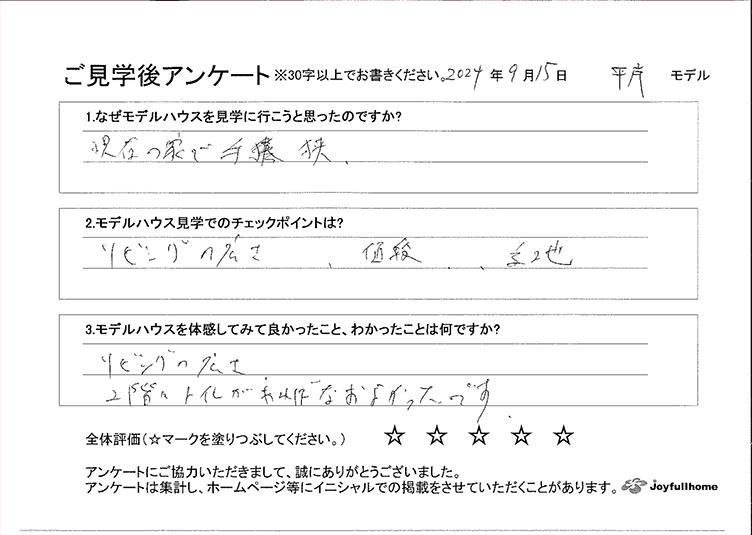 ご見学後アンケート ※30字以上でお書きください。2024年9月15日 平岸 モデル
1.なぜモデルハウスを見学に行こうと思ったのですか?
現在の家で手 狭、
2.モデルハウス見学でのチェックポイントは?
リビングの広さ 、価段 、 立地
3.モデルハウスを体感してみて良かったこと、わかったことは何ですか?
リビングの広さ
2階にトイレがあればなおよかったです。
全体評価(☆マークを塗りつぶしてください。) ☆ ☆ ☆ ☆ ☆
アンケートにご協力いただきまして、誠にありがとうございました。
アンケートは集計し、ホームページ等にイニシャルでの掲載をさせていただくことがあります。 Joyfullhome